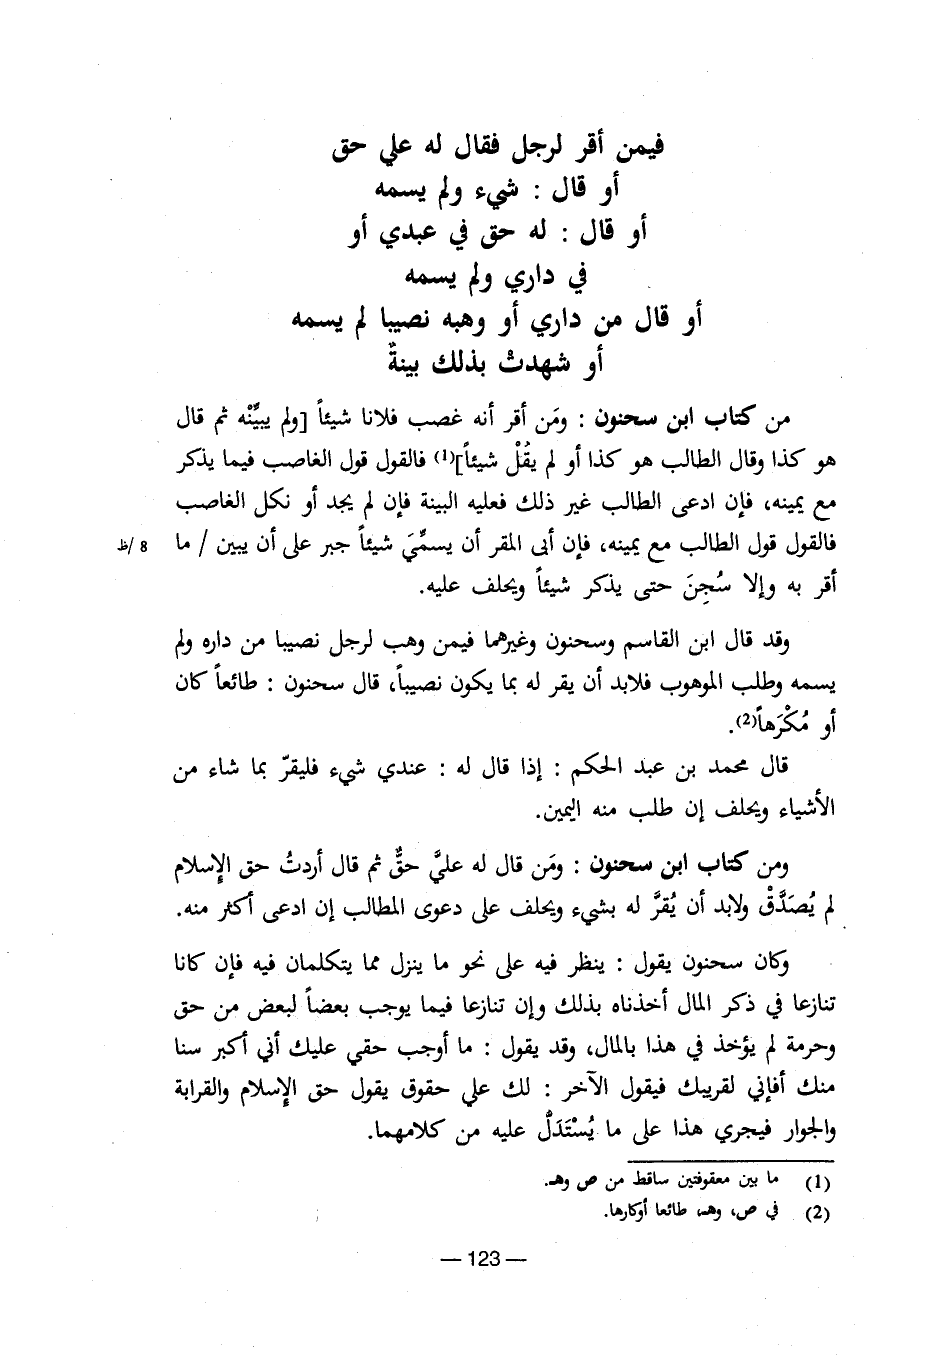 فيمن أقر لرجل فقال له علي حق
أو قال : شيء ولم يسمه
أو قال : له حق في عبدي أو
في داري ولم يسمه
أو قال من داري أو وهبه نصيبا لم يسمه
أو شهدتْ بذلك بينةٌ
من كتاب ابن سحنون : ومَن أقر أنه غصب فلانا شيئاً [ولم يبيِّنْه ثم قال
هو كذا وقال الطالب هو كذا أو لم يقُلْ شيئاً](1) فالقول قول الغاصب فيما يذكر
مع يمينه، فإن ادعى الطالب غير ذلك فعليه البينة فإن لم يجد أو نكل الغاصب
فالقول قول الطالب مع يمينه، فإن أبى المقر أن يسمِّيَ شيئاً جبر على أن يبين / ما 8 /ظ
أقر به وإلا سُجِنَ حتى يذكر شيئاً ويحلف عليه.
وقد قال ابن القاسم وسحنون وغيرهما فيمن وهب لرجل نصيبا من داره ولم
يسمه وطلب الموهوب فلابد أن يقر له بما يكون نصيباً، قال سحنون : طائعاً كان
أو مُكْرَهاً(2).
قال محمد بن عبد الحكم : إذا قال له : عندي شيء فليقرّ بما شاء من
الأشياء ويحلف إن طلب منه اليمين.
ومن كتاب ابن سحنون : ومَن قال له عليَّ حقٌّ ثم قال أردتُ حق الإسلام
لم يُصَدَّقْ ولابد أن يُقرَّ له بشيء ويحلف على دعوى المطالب إن ادعى أكثر منه.
وكان سحنون يقول : ينظر فيه على نحو ما ينزل مما يتكلمان فيه فإن كانا
تنازعا في ذكر المال أخذناه بذلك وإن تنازعا فيما يوجب بعضاً لبعض من حق
وحرمة لم يؤخذ في هذا بالمال، وقد يقول : ما أوجب حقي عليك أني أكبر سنا
منك أفإني لقريبك فيقول الآخر : لك علي حقوق يقول حق الإسلام والقرابة
والجوار فيجري هذا على ما يُسْتَدَلُّ عليه من كلامهما.
(1) ما بين معقوفتين ساقط من ص وهـ.
(2) في ص، وهـ، طائعا أوكارها.
— 123 —